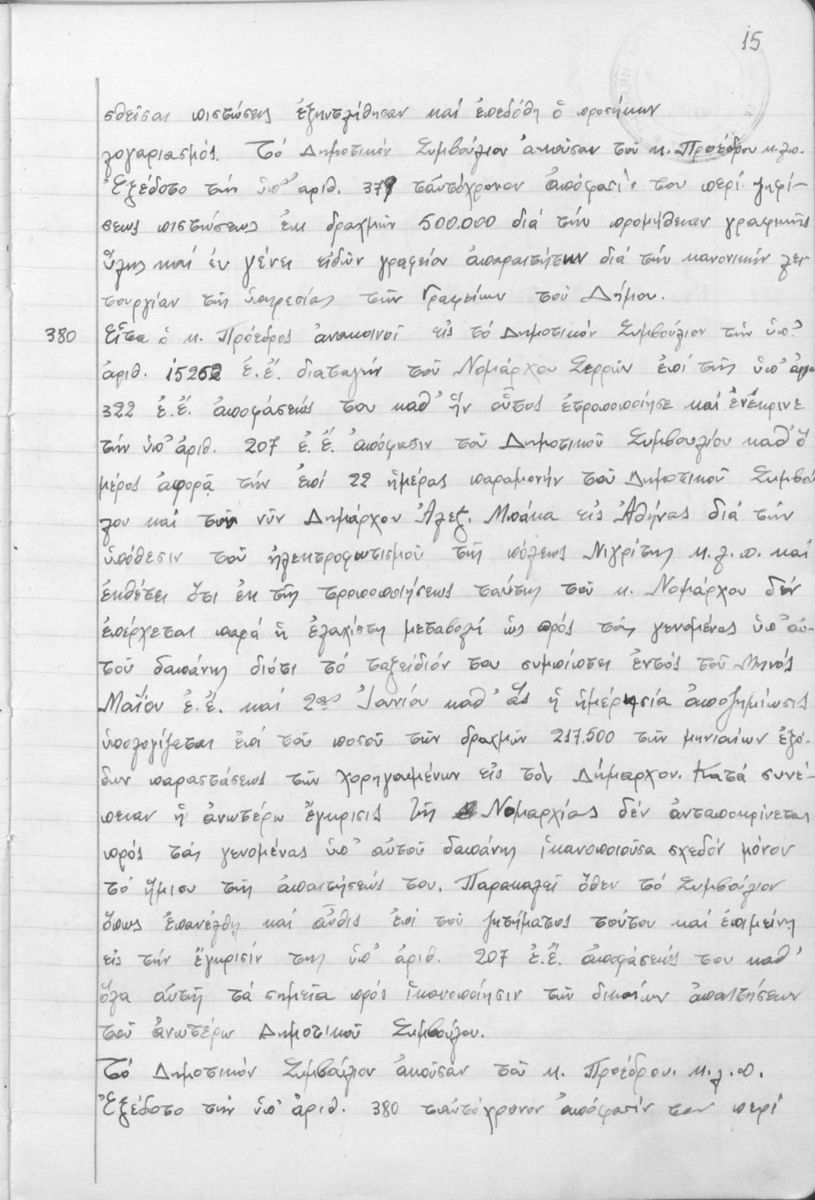 15
σθεῖσαι πιστώσεις ἐξηντλήθησαν καί ἐπεδόθη ὁ προσήκων
λογαριασμός. Τό Δημοτικόν Συμβούλιον ἀκοῦσαν τοῦ κ. Προέδρου κ.λ.π.
Ἐξέδοτο τήν ὑπ' ἀριθ. 379 ταὐτόχρονον ἀπόφασίν του περί ψηφί-
σεως πιστώσεως ἐκ δραχμῶν 500.000 διά τήν προμήθειαν γραφικῆς
ὕλης καί ἐν γένει εἰδῶν γραφείου ἀπαραιτήτων διά τήν κανονικήν λει-
τουργίαν τῆς ὑπηρεσίας τῶν Γραφείων τοῦ Δήμου.
380 Εἶτα ὁ κ. Πρόεδρος ἀνακοινοῖ εἰς τό Δημοτικόν Συμβούλιον τήν ὑπ'
ἀριθ. 15252 ἐ.ἔ. διαταγήν τοῦ Νομάρχου Σερρῶν ἐπί τῆς ὑπ' ἀριθ
322 ἐ.ἔ. ἀποφάσεώς του καθ' ἥν οὗτος ἐτροποποίησε καί ἐνέκρινε
τήν ὑπ' ἀριθ. 207 ἐ.ἔ. ἀπόφασιν τοῦ Δημοτικοῦ Συμβουλίου καθ' ὅ
μέρος ἀφορᾷ τήν ἐπί 22 ἡμέρας παραμονήν τοῦ Δημοτικοῦ Συμβού
λου καί τοῦ νῦν Δημάρχου Ἀλεξ. Μπάκα εἰς Ἀθήνας διά τήν
ὑπόθεσιν τοῦ ἠλεκτροφωτισμοῦ τῆς πόλεως Νιγρίτης κ.λ.π. καί
ἐκθέτει ὅτι ἐκ τῆς τροποποιήσεως ταύτης τοῦ κ. Νομάρχου δέν
ἐπέρχεται παρά ἡ ἐλαχίστη μεταβολή ὡς πρός τάς γενομένας ὑπ' αὐ-
τοῦ δαπάνης διότι τό ταξείδιόν του συμπίπτει ἐντός τοῦ Μηνός
Μαΐου ἐ.ἔ. καί 2ας Ἰουνίου καθ' ἅς ἡ ἡμερησία ἀποζημίωσις
ὑπολογίζεται ἐπί τοῦ ποσοῦ τῶν δραχμῶν 217.500 τῶν μηνιαίων ἐξό-
δων παραστάσεως τῶν χορηγουμένων εἰς τόν Δήμαρχον. Κατά συνέ-
πειαν ἡ ἀνωτέρω ἔγκρισις τῆς Νομαρχίας δέν ἀνταποκρίνεται
πρός τάς γενομένας ὑπ' αὐτοῦ δαπάνης ἱκανοποιοῦσα σχεδόν μόνον
τό ἥμισυ τῆς ἀπαιτήσεώς του. Παρακαλεῖ ὅθεν τό Συμβούλιον
ὅπως ἐπανέλθῃ καί αὖθις ἐπί τοῦ ζητήματος τούτου καί ἐπιμείνῃ
εἰς τήν ἔγκρισίν της ὑπ' ἀριθ. 207 ἐ.ἔ. ἀποφάσεώς του καθ'
ὅλα αὐτῆς τά σημεῖα πρός ἱκανοποίησιν τῶν δικαίων ἀπαιτήσεων
τοῦ ἀνωτέρω Δημοτικοῦ Συμβούλου.
Τό Δημοτικόν Συμβούλιον ἀκοῦσαν τοῦ κ. Προέδρου. κ.λ.π.
Ἐξέδοτο τήν ὑπ' ἀριθ. 380 ταὐτόχρονον ἀπόφασίν του περί